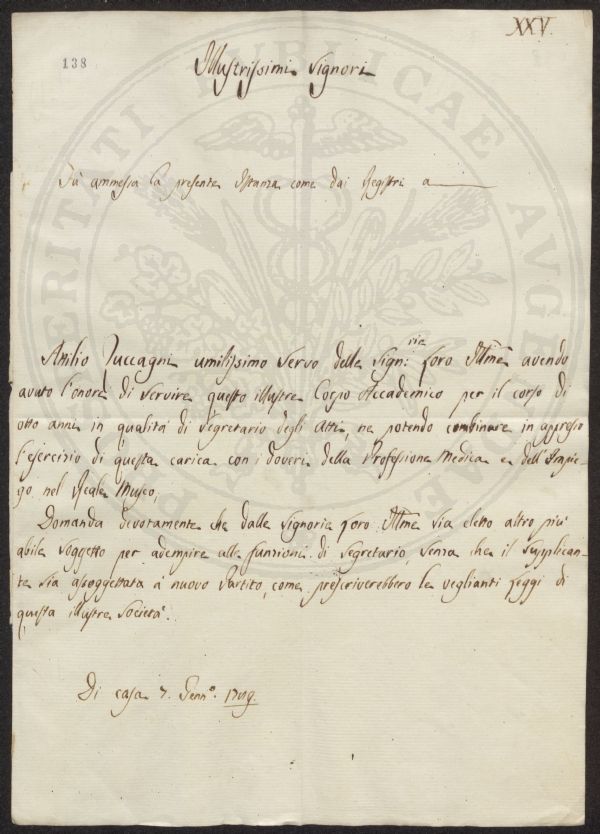 XXV.
138
Illustrissimi Signori
Fù ammessa la presente Istanza come dai Registri a
Attilio Zuccagni umilissimo servo delle Sign:rie Loro Ill:me avendo
avuto l'onore di servire questo illustre Corpo Accademico per il corso di
otto anni in qualità di Segretario degli Atti, ne potendo combinare in appresso
l'esercizio di questa carica con i doveri della Professione Medica e dell'Impie-
go nel Reale Museo;
Domanda devotamente che dalle Signorie Loro Ill:me sia eletto altro più
abile soggetto per adempire alle funzioni di Segretario, senza che il supplican-
te sia assoggettato a nuovo Partito, come prescriverebbero le veglianti Leggi di
questa illustre Società.
Di casa 7. Genn.º
PROSPERITATI PUBLICAE AUGENDAE